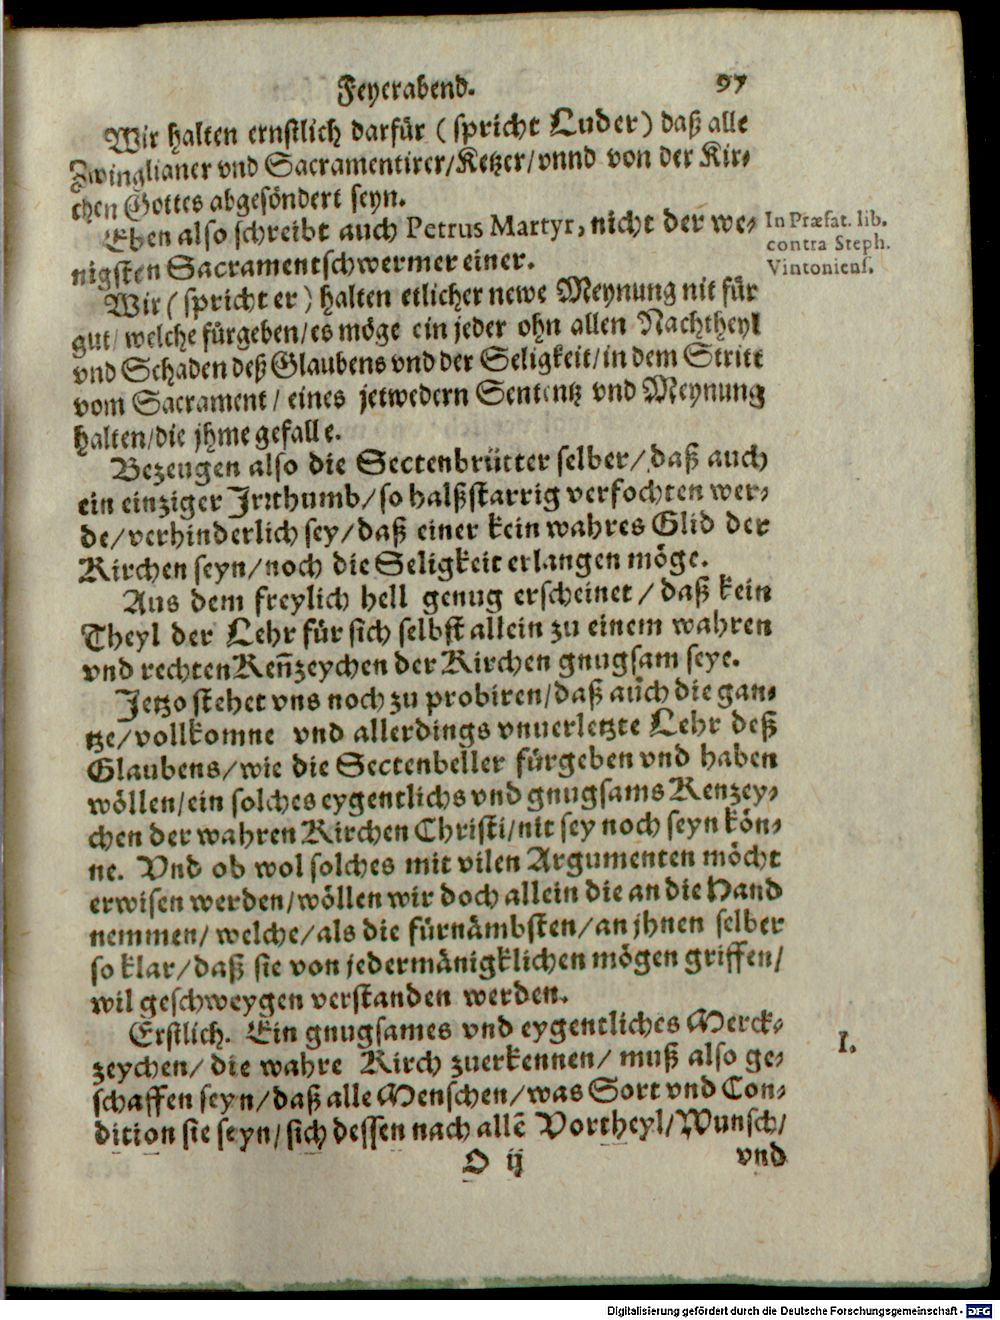 Feyerabend. 97
Wir halten ernstlich darfür ( spricht Luder) daß alle
Zwinglianer vnd Sacramentirer/Ketzer/vnnd von der Kir-
chen Gottes abgesöndert seyn.
Eben also schreibt auch Petrus Martyr, nicht der we-
nigsten Sacramentschwermer einer.
In Præfat. lib.
contra Steph.
Vintoniens.
Wir ( spricht er ) halten etlicher newe Meynung nit für
gut/ welche fürgeben/es möge ein jeder ohn allen Nachtheyl
vnd Schaden deß Glaubens vnd der Seligkeit/in dem Stritt
vom Sacrament/ eines jetwedern Sententz vnd Meynung
halten/die jhme gefalle.
Bezeugen also die Sectenbrütter selber/ daß auch
ein einziger Jrrthumb/so halßstarrig verfochten wer-
de/verhinderlich sey/daß einer kein wahres Glid der
Kirchen seyn/noch die Seligkeit erlangen möge.
Aus dem freylich hell genug erscheinet/ daß kein
Theyl der Lehr für sich selbst allein zu einem wahren
vnd rechten Keñzeychen der Kirchen gnugsam seye.
Jetzo stehet vns noch zu probiren/daß auch die gan-
tze/vollkomne vnd allerdings vnuerletzte Lehr deß
Glaubens/wie die Sectenbeller fürgeben vnd haben
wöllen/ein solches eygentlichs vnd gnugsams Kenzey-
chen der wahren Kirchen Christi/nit sey noch seyn kön-
ne. Vnd ob wol solches mit vilen Argumenten möcht
erwisen werden/wöllen wir doch allein die an die Hand
nemmen/ welche/als die fürnämbsten/an jhnen selber
so klar/daß sie von jedermänigklichen mögen griffen/
wil geschweygen verstanden werden.
Erstlich. Ein gnugsames vnd eygentliches Merck-
zeychen/ die wahre Kirch zuerkennen/ muß also ge-
schaffen seyn/daß alle Menschen/was Sort vnd Con-
dition sie seyn/sich dessen nach allē Vortheyl/Wunsch/
I.
O ij vnd
Digitalisierung gefördert durch die Deutsche Forschungsgemeinschaft - DFG